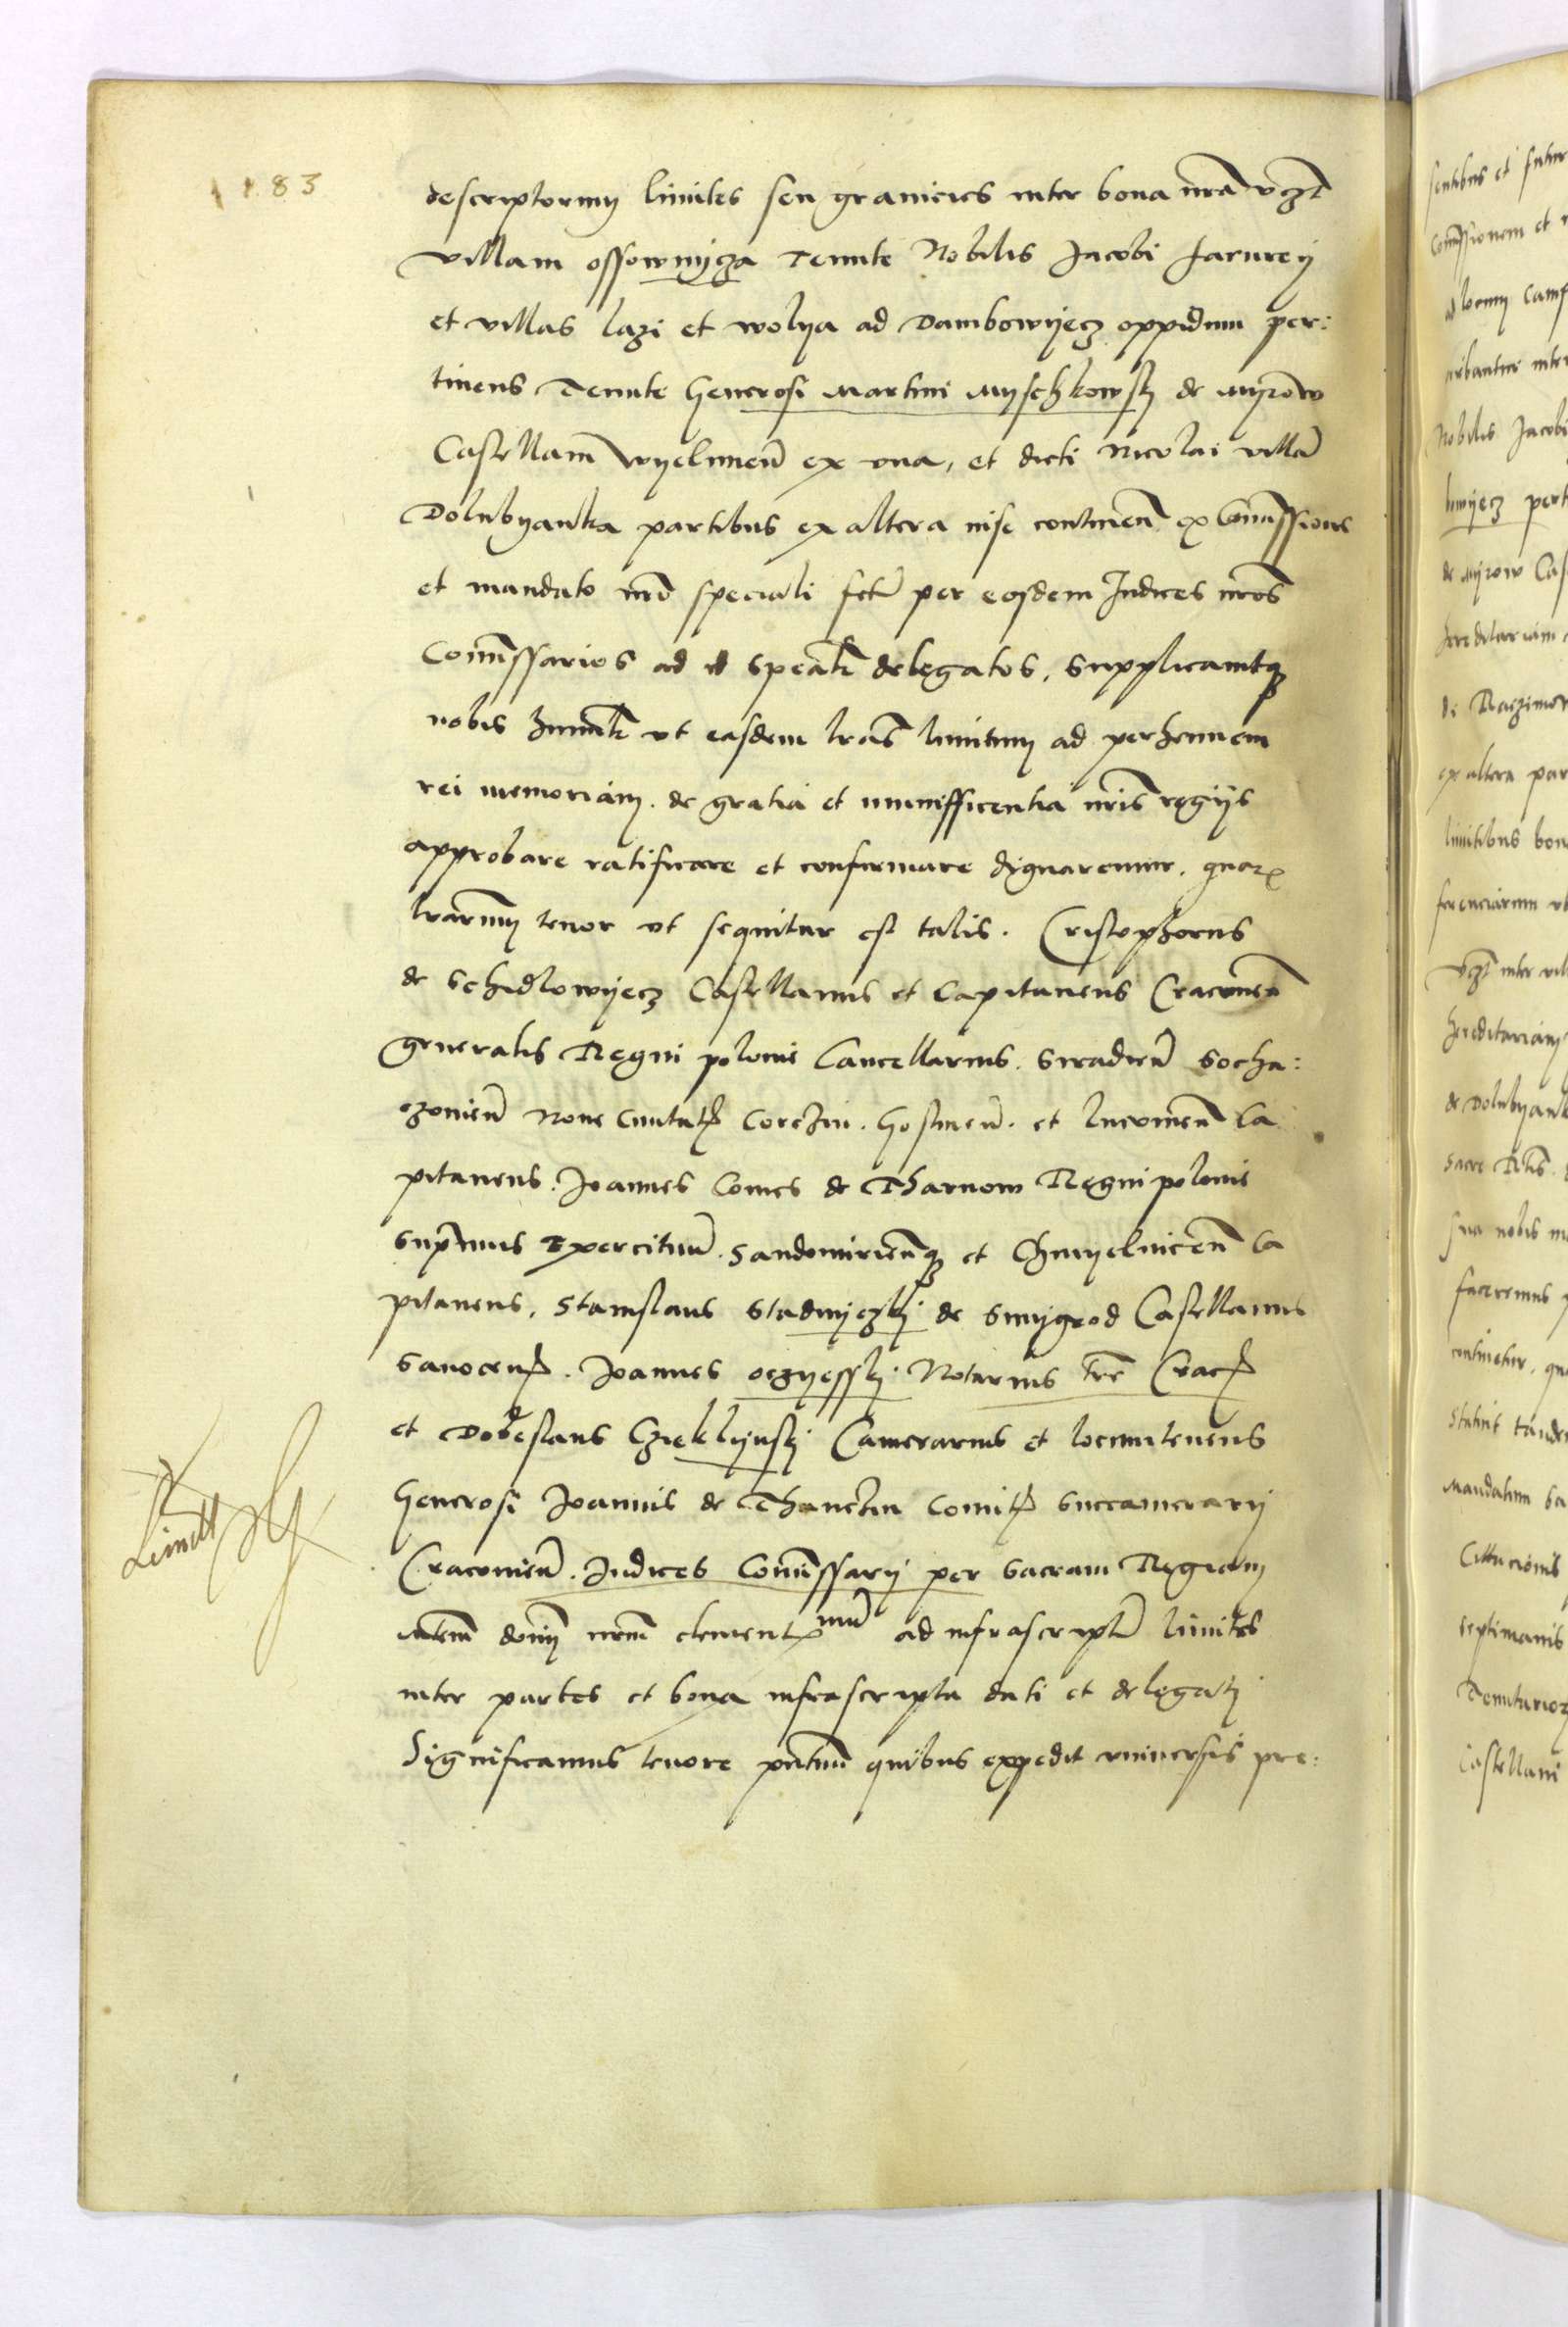 183
descriptorum limites seu granicies inter bona nrã vczt
villam ossownycza Tenute Nobilis Jacobi farurey
et villas lazi et wolya ad Dambowyecz oppidum per:
tinens Tenute Generosi Martini Myschkowsky de Myrow
Castellani wyelunen̄ ex vna, et dicti Nicolai villā
Dolubyanka partibus ex altera in se continen̄ ex Comissione
et mandato nrō speciali per eosdem Judices nros
Comissarios ad id delegatos, supplicauitq;
nobis vt easdem lrās limitum ad perhennem
rei memoriam de gratia et munifficentia nris regijs
approbare ratificare et confirmare dignaremur. quarꝫ
lrarum tenor vt sequitur est talis. Cristophorus
de Schidlowyecz Castellanus et Capitaneus Cracouien̄
generalis Regni polonie Cancellarius. Siradien̄ Socha:
czouien̄ None Corczin. Gostinen̄. et Lucouien̄ Ca
pitaneus. Joannes Comes de Tharnow Regni polonie
supremus Exercituū. Sandomirien̄q; et Chmyelnicen̄ Ca
pitaneus, Stanislaus Stadnyczky de Smygrod Castellanus
Sanocen̄. Joannes oczyessky Notarius Trre Crac
et Dobeslaus Czieklynsky Camerarius et locumtenens
Generosi Joannis de Thanczin Comit Succamerarij
Cracouien̄. Judices Comissarij per Sacram Regiam
Mtem dnm nrm clementꝫmū ad infrascriptū limites
inter partes et bona infrascripta dati et delegati
Significamus tenore pntium quibus expedit vniuersis pre:
Limitt
sentibus et futur
Comissionem et
Nobilis Jacobi
de Myrow Cas
hereditariam
ex altera par
limitibus bon
vczt inter vil
hereditariam
de Dolubyank
sua nobis
faceremus
continetur
Mandatum sa
Cittucionis
septimanis
Tenutarioꝫ
Castellani